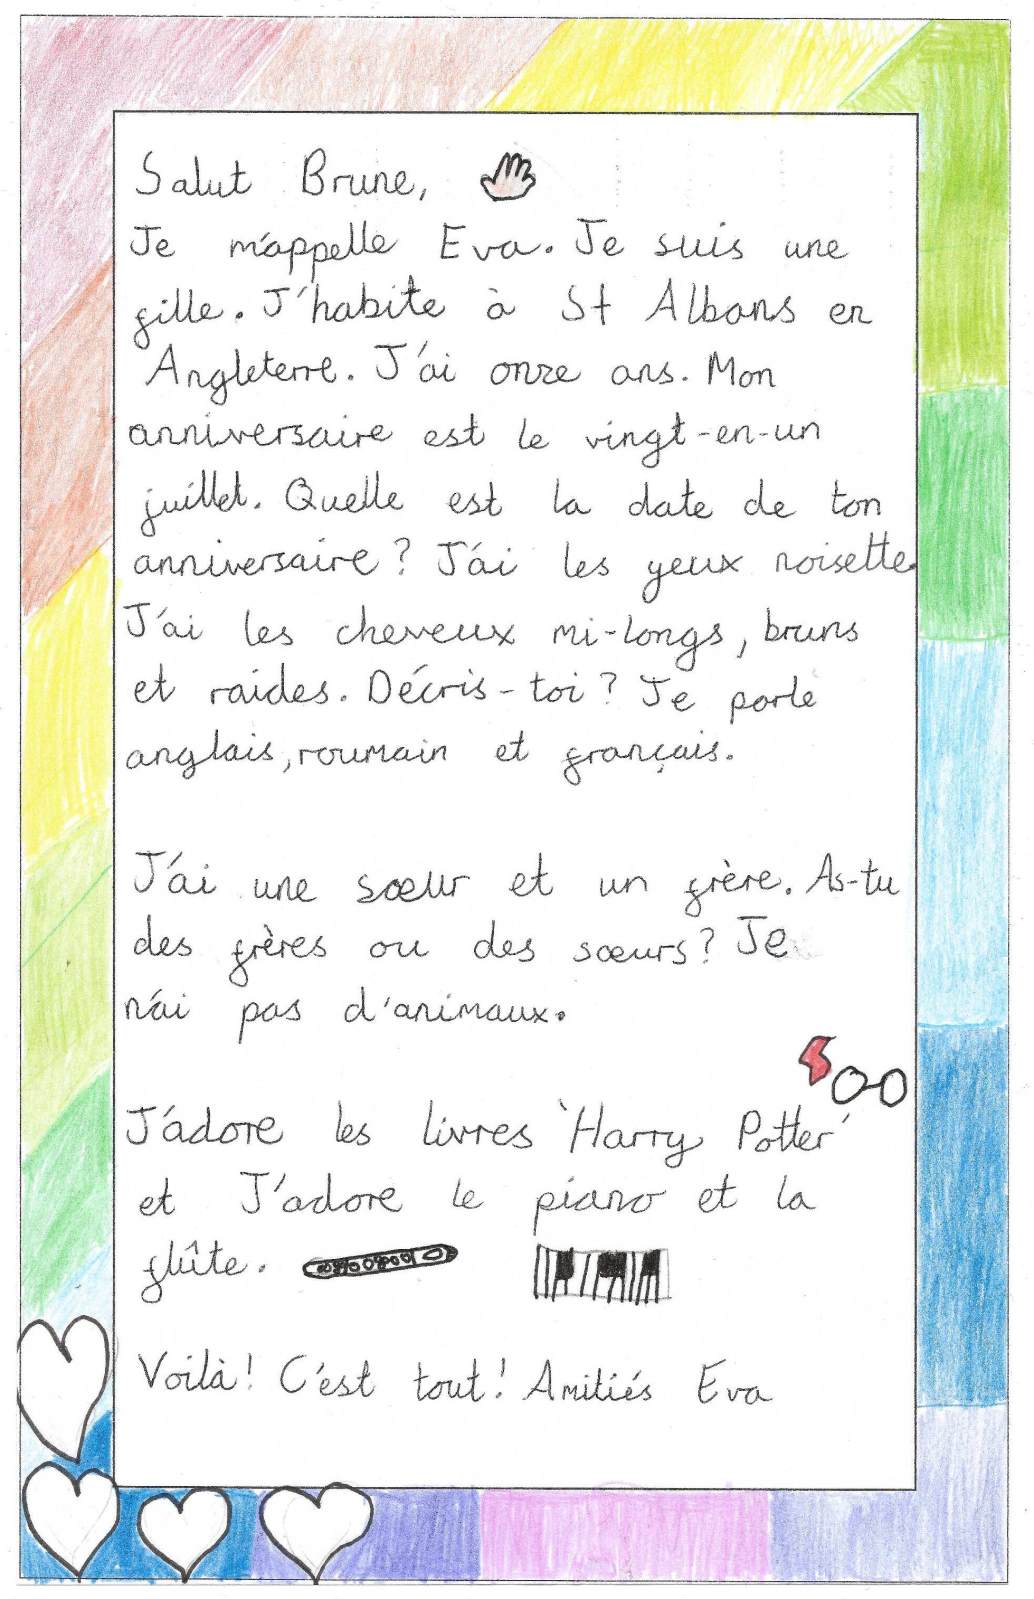 Salut Brune,
Je m'appelle Eva. Je suis une
fille. J'habite à St Albans en
Angleterre. J'ai onze ans. Mon
anniversaire est le vingt-en-un
juillet. Quelle est la date de ton
anniversaire? J'ai les yeux noisette.
J'ai les cheveux mi-longs, bruns
et raides. Décris-toi? Je parle
anglais, roumain et français.
J'ai une sœur et un frère. As-tu
des frères ou des sœurs? Je
n'ai pas d'animaux.
J'adore les livres 'Harry Potter'
et J'adore le piano et la
flûte.
Voilà! C'est tout! Amitiés Eva